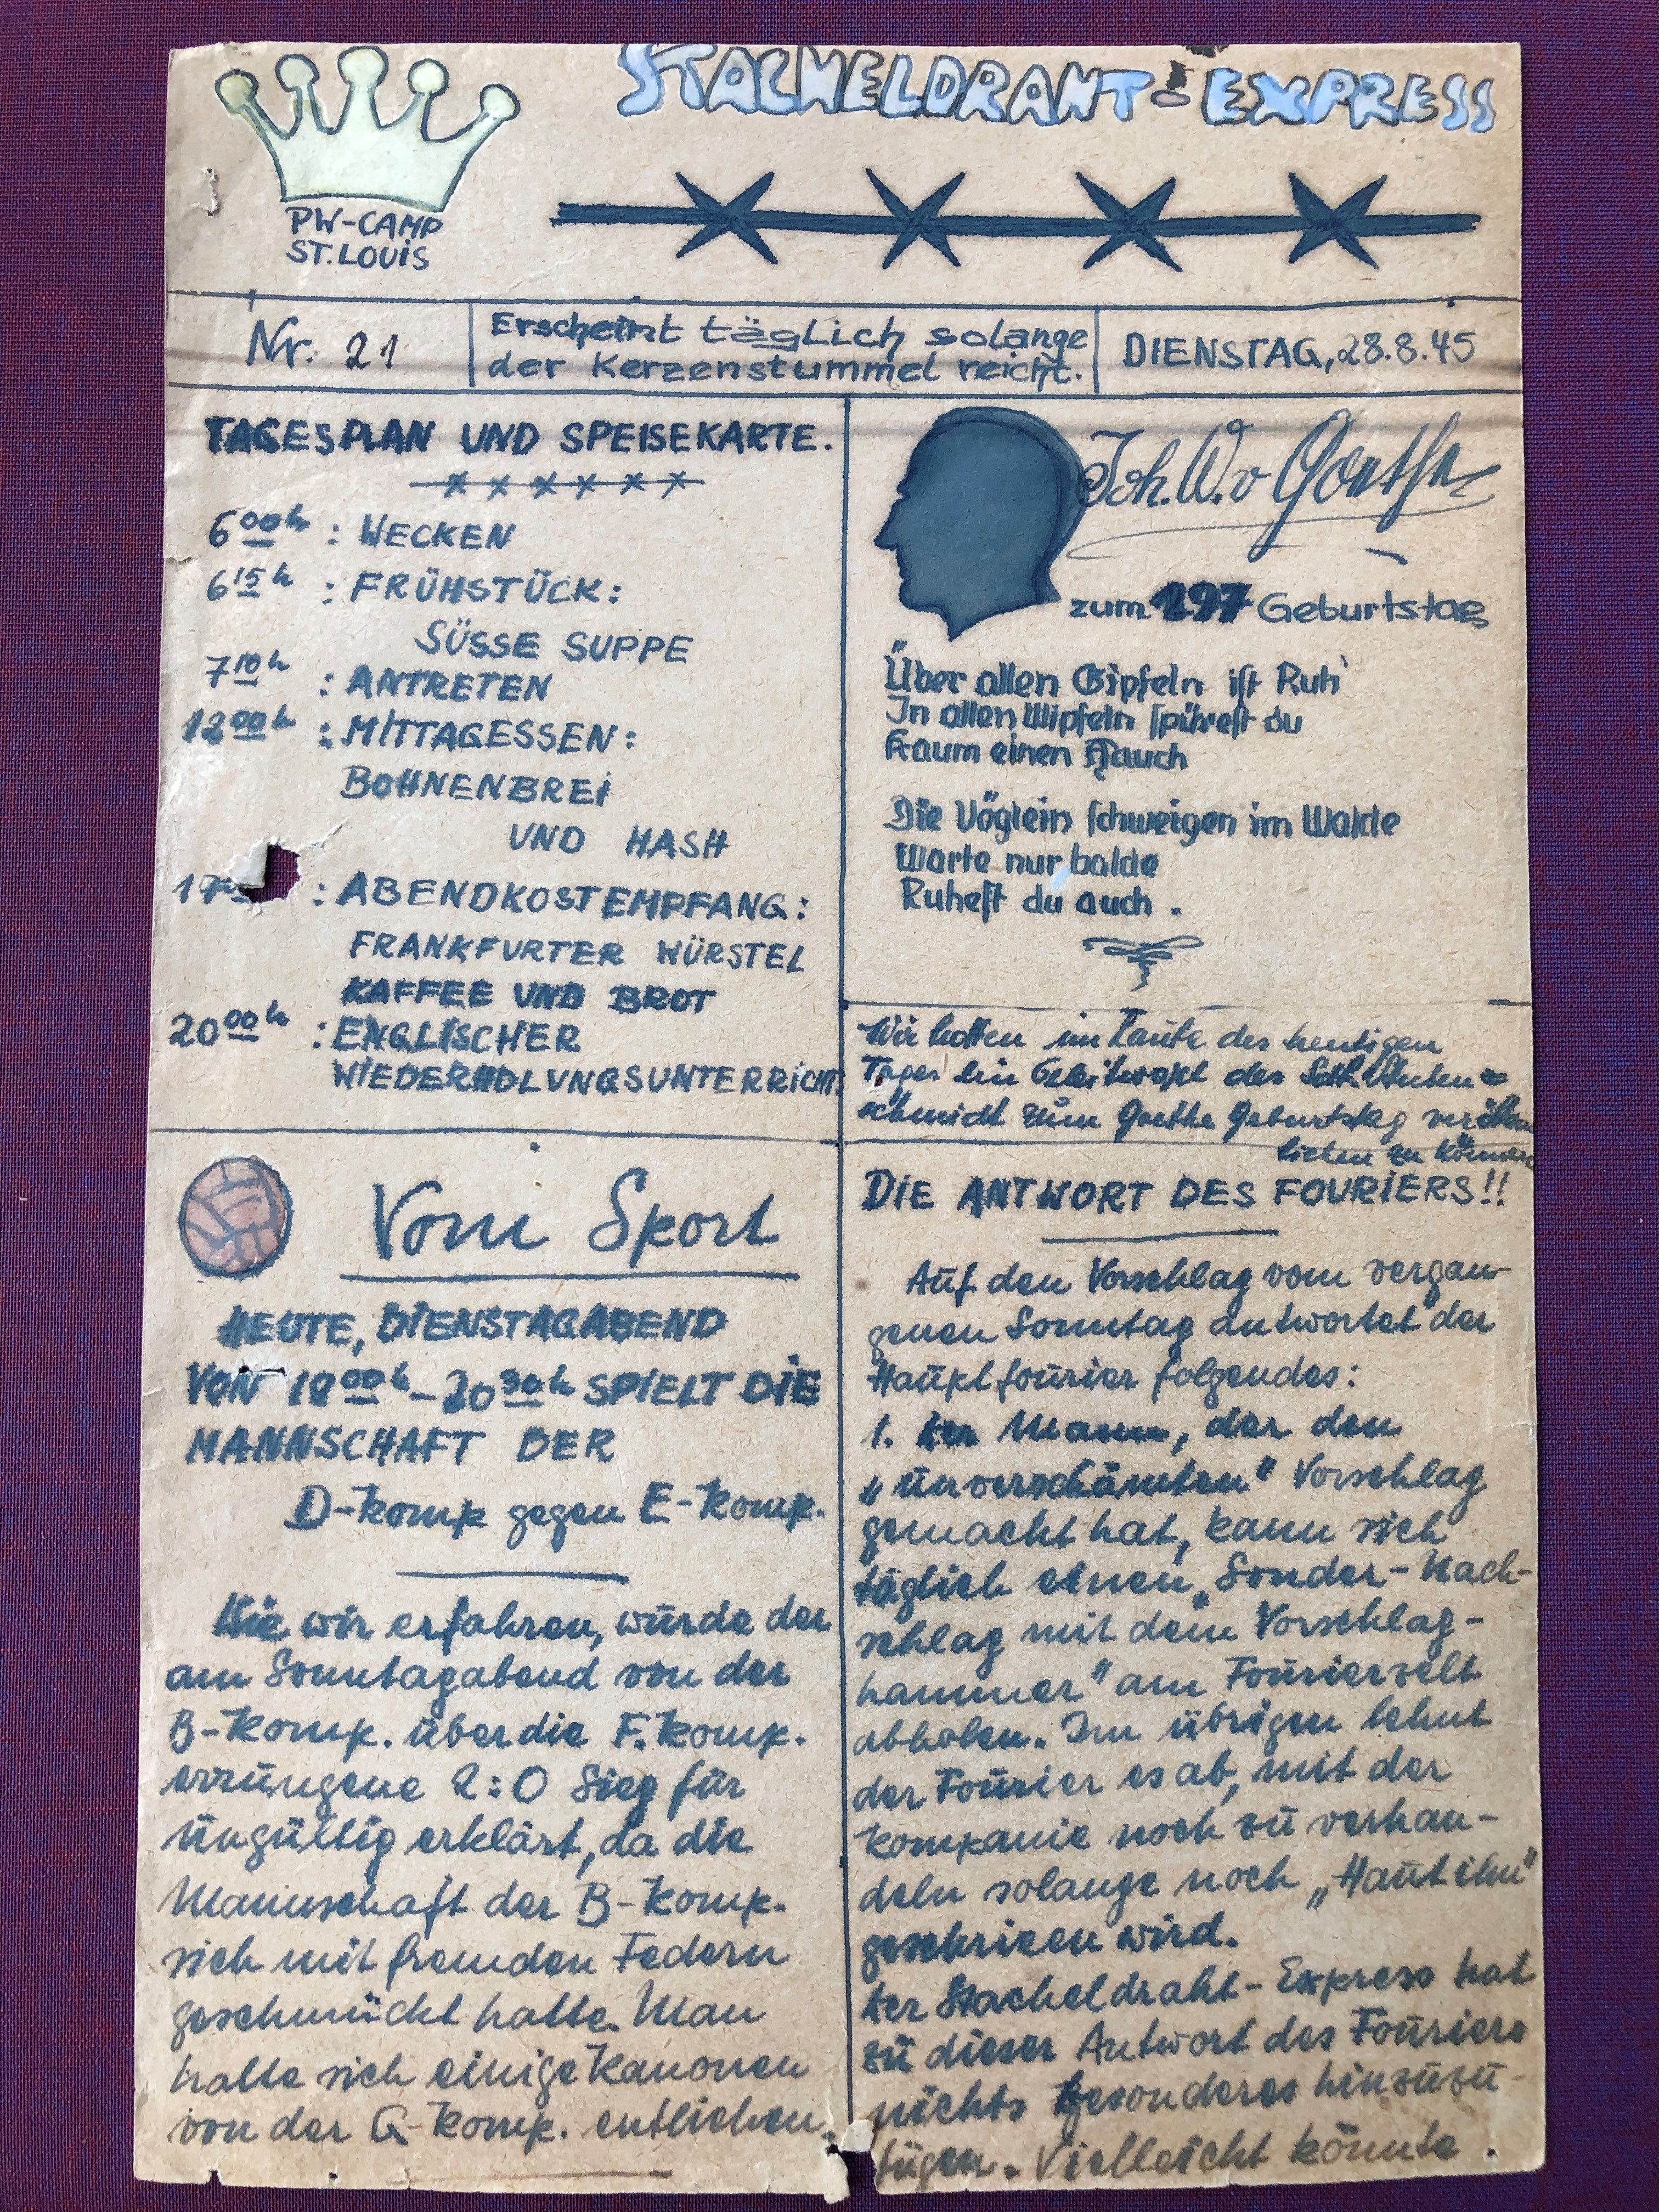 STACHELDRAHT-EXPRESS
PW-CAMP
ST. LOUIS
Nr. 21
Erscheint täglich solange
der Kerzenstummel reicht.
DIENSTAG, 28.8.45
TAGESPLAN UND SPEISEKARTE.
6 00 h : WECKEN
6 15 h : FRÜHSTÜCK:
SÜSSE SUPPE
7 10 h : ANTRETEN
12 00 h : MITTAGESSEN:
BOHNENBREI
UND HASH
: ABENDKOSTEMPFANG:
FRANKFURTER WÜRSTEL
KAFFEE UND BROT
20 00 h : ENGLISCHER
WIEDERHOLUNGSUNTERRICHT
Vom Sport
HEUTE, DIENSTAGABEND
VON 18 00 h - 20 30 h SPIELT DIE
MANNSCHAFT DER
D-Komp gegen E-Komp.
Wie wir erfahren, wurde der
am Sonntagabend von der
B-Komp. über die F. Komp.
errungene 2:0 Sieg für
ungültig erklärt, da die
Mannschaft der B-Komp.
sich mit fremden Federn
geschmückt hatte. Man
hatte sich einige Kanonen
von der G-Komp. entliehen.
Joh. W. v Goethe
zum 197 Geburtstag
Über allen Gipfeln ist Ruh'
In allen Wipfeln spürest du
Kaum einen Hauch
Die Vöglein schweigen im Walde
Warte nur balde
Ruhest du auch.
Wir hoffen im Laufe des heutigen
Tages ein Geleitwort des
schmidt zum Goethe Geburtstag veröffent
lichen zu können
DIE ANTWORT DES FOURIERS!!
Auf den Vorschlag vom vergan-
genen Sonntag antwortet der
Hauptfourier folgendes:
1. Der Mann, der den
„unverschämten" Vorschlag
gemacht hat, kann sich
täglich einen „Sonder-Nach-
schlag mit dem Vorschlag-
hammer" am Fourierzelt
abholen. Im übrigen lehnt
der Fourier es ab, mit der
Kompanie noch zu verhan-
deln solange noch „Haut ihn"
geschrieen wird.
Der Stacheldraht-Express hat
zu dieser Antwort des Fouriers
nichts Besonderes hinzuzu-
fügen. Vielleicht könnte